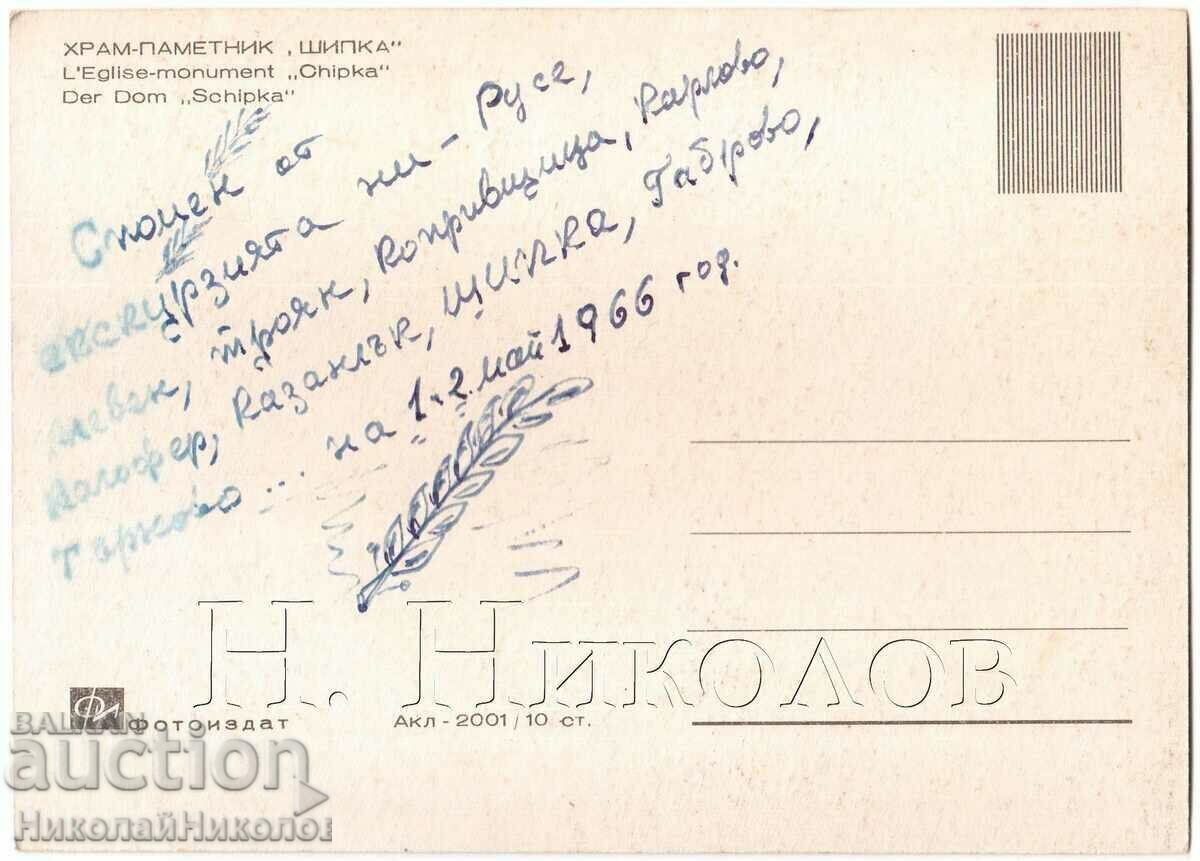 ХРАМ-ПАМЕТНИК „ШИПКА"
L'Eglise-monument „Chipka"
Der Dom „Schipka"
Спомен от
екскурзията ни - Русе,
Плевен, Троян, Копривщица, Карлово,
Калофер, Казанлък, Шипка, Габрово,
Търново ... на 1.2. май 1966 год.
Н. Николов
ФИ
Фотоиздат
Акл - 2001 / 10 ст.
BALKAN
auction
НиколайНиколов